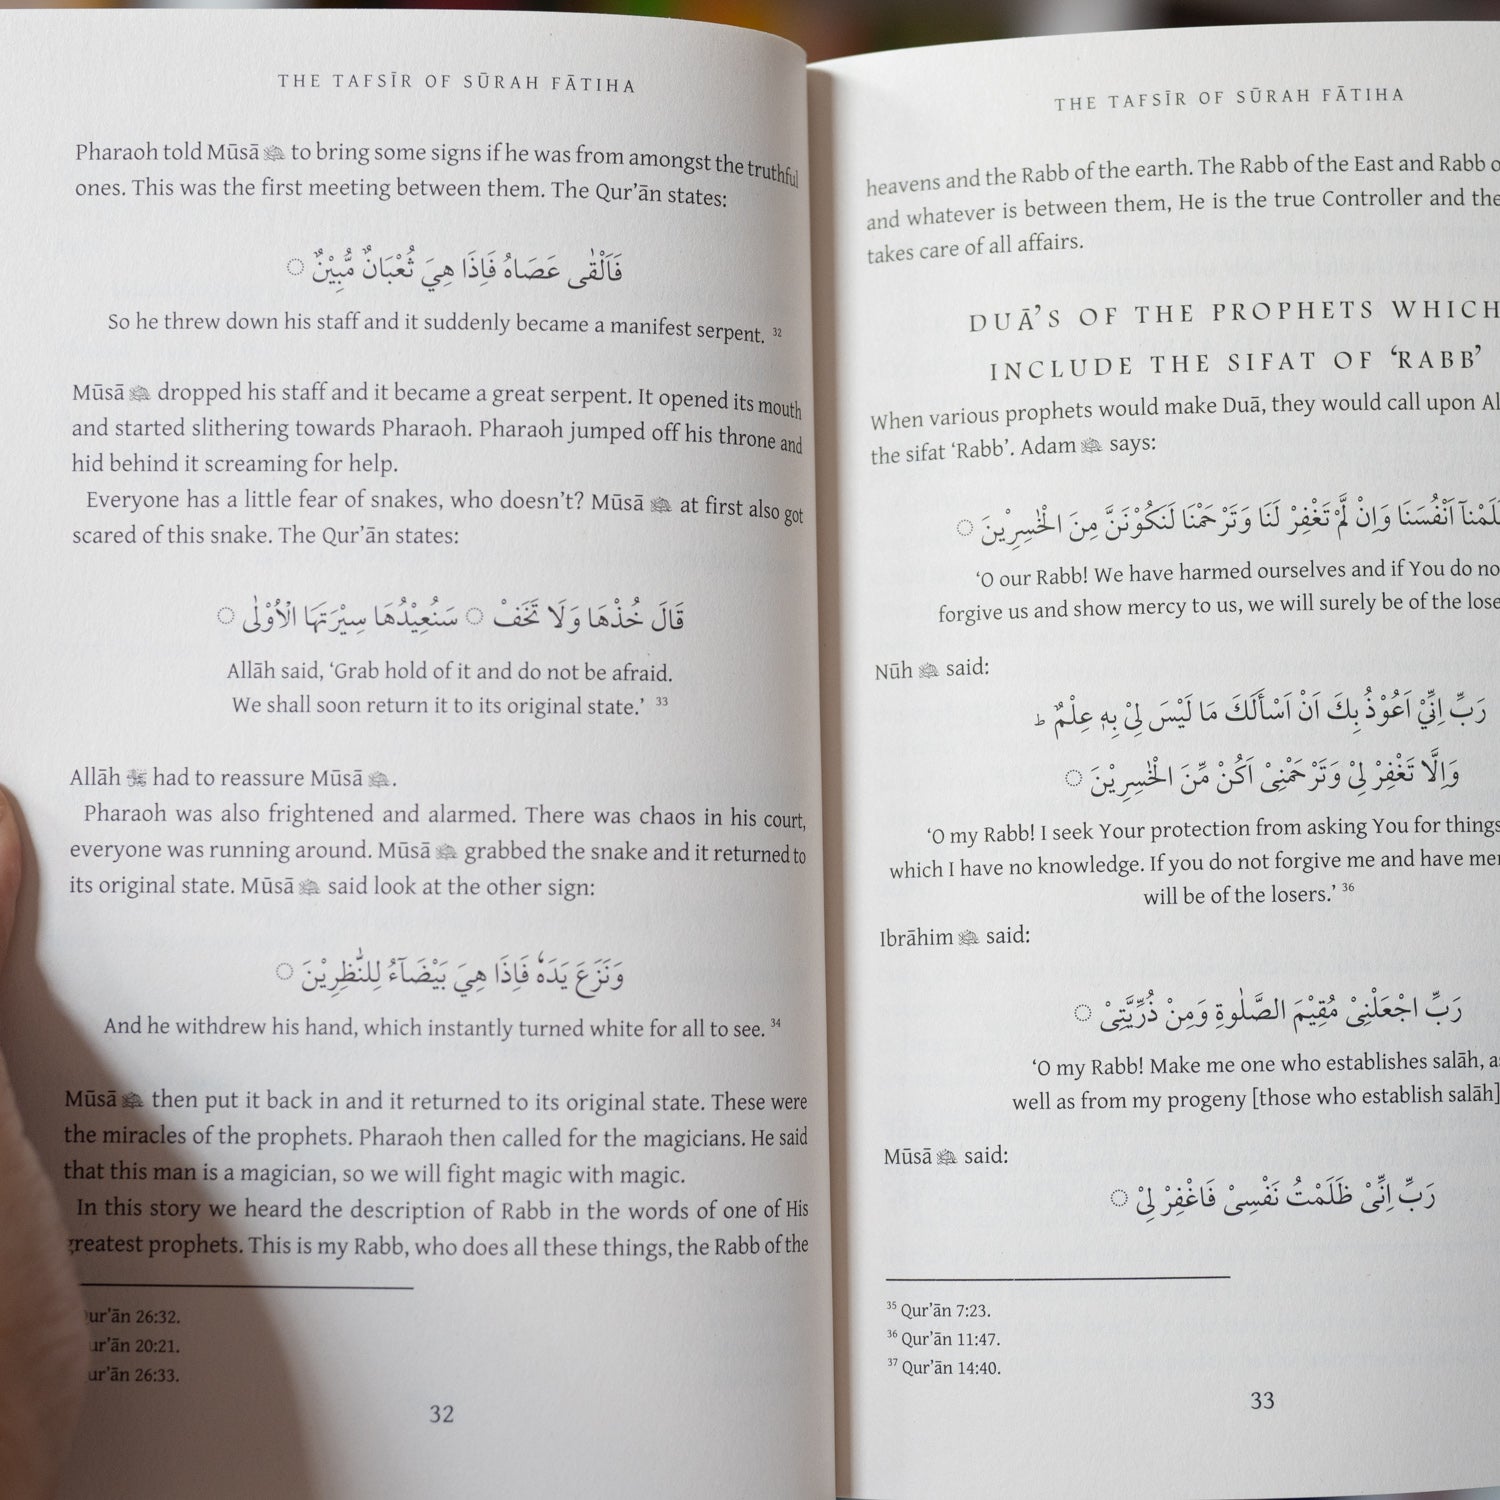 THE TAFSĪR OF SŪRAH FĀTIHA
Pharaoh told Mūsā to bring some signs if he was from amongst the truthful
ones. This was the first meeting between them. The Qur’ān states:
فَاَلْقٰى عَصَاهُ فَاِذَا هِيَ ثُعْبَانٌ مُّبِيْنٌ ۝
So he threw down his staff and it suddenly became a manifest serpent. 32
Mūsā dropped his staff and it became a great serpent. It opened its mouth
and started slithering towards Pharaoh. Pharaoh jumped off his throne and
hid behind it screaming for help.
Everyone has a little fear of snakes, who doesn’t? Mūsā at first also got
scared of this snake. The Qur’ān states:
قَالَ خُذْهَا وَلَا تَخَفْ ۝ سَنُعِيْدُهَا سِيْرَتَهَا الْاُوْلٰى ۝
Allāh said, ‘Grab hold of it and do not be afraid.
We shall soon return it to its original state.’ 33
Allāh had to reassure Mūsā.
Pharaoh was also frightened and alarmed. There was chaos in his court,
everyone was running around. Mūsā grabbed the snake and it returned to
its original state. Mūsā said look at the other sign:
وَنَزَعَ يَدَهٗ فَاِذَا هِيَ بَيْضَآءُ لِلنّٰظِرِيْنَ ۝
And he withdrew his hand, which instantly turned white for all to see. 34
Mūsā then put it back in and it returned to its original state. These were
the miracles of the prophets. Pharaoh then called for the magicians. He said
that this man is a magician, so we will fight magic with magic.
In this story we heard the description of Rabb in the words of one of His
greatest prophets. This is my Rabb, who does all these things, the Rabb of the
ur’ān 26:32.
ur’ān 20:21.
ur’ān 26:33.
32
THE TAFSĪR OF SŪRAH FĀTIHA
heavens and the Rabb of the earth. The Rabb of the East and Rabb
and whatever is between them, He is the true Controller and the
takes care of all affairs.
DUĀ’S OF THE PROPHETS WHICH
INCLUDE THE SIFAT OF ‘RABB’
When various prophets would make Duā, they would call upon Al
the sifat ‘Rabb’. Adam says:
اَنْفُسَنَا وَاِنْ لَّمْ تَغْفِرْ لَنَا وَتَرْحَمْنَا لَنَكُوْنَنَّ مِنَ الْخٰسِرِيْنَ ۝
‘O our Rabb! We have harmed ourselves and if You do no
forgive us and show mercy to us, we will surely be of the lose
Nūh said:
رَبِّ اِنِّيْ اَعُوْذُ بِكَ اَنْ اَسْأَلَكَ مَا لَيْسَ لِيْ بِهٖ عِلْمٌ ط
وَاِلَّا تَغْفِرْ لِيْ وَتَرْحَمْنِيْ اَكُنْ مِّنَ الْخٰسِرِيْنَ ۝
‘O my Rabb! I seek Your protection from asking You for things
which I have no knowledge. If you do not forgive me and have mer
will be of the losers.’ 36
Ibrāhim said:
رَبِّ اجْعَلْنِيْ مُقِيْمَ الصَّلٰوةِ وَمِنْ ذُرِّيَّتِيْ ۝
‘O my Rabb! Make me one who establishes salāh, as
well as from my progeny [those who establish salāh]
Mūsā said:
رَبِّ اِنِّيْ ظَلَمْتُ نَفْسِيْ فَاغْفِرْ لِيْ ۝
35 Qur’ān 7:23.
36 Qur’ān 11:47.
37 Qur’ān 14:40.
33